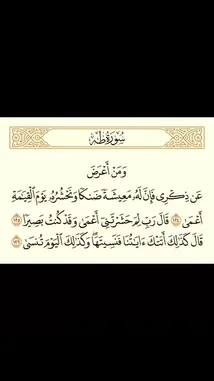 سُورَةُ طه
وَمَنْ أَعْرَضَ
عَن ذِكْرِى فَإِنَّ لَهُۥ مَعِيشَةً ضَنكًا وَنَحْشُرُهُۥ يَوْمَ ٱلْقِيَـٰمَةِ
أَعْمَىٰ ١٢٤ قَالَ رَبِّ لِمَ حَشَرْتَنِىٓ أَعْمَىٰ وَقَدْ كُنتُ بَصِيرًا ١٢٥
قَالَ كَذَٰلِكَ أَتَتْكَ ءَايَـٰتُنَا فَنَسِيتَهَا ۖ وَكَذَٰلِكَ ٱلْيَوْمَ تُنسَىٰ ١٢٦